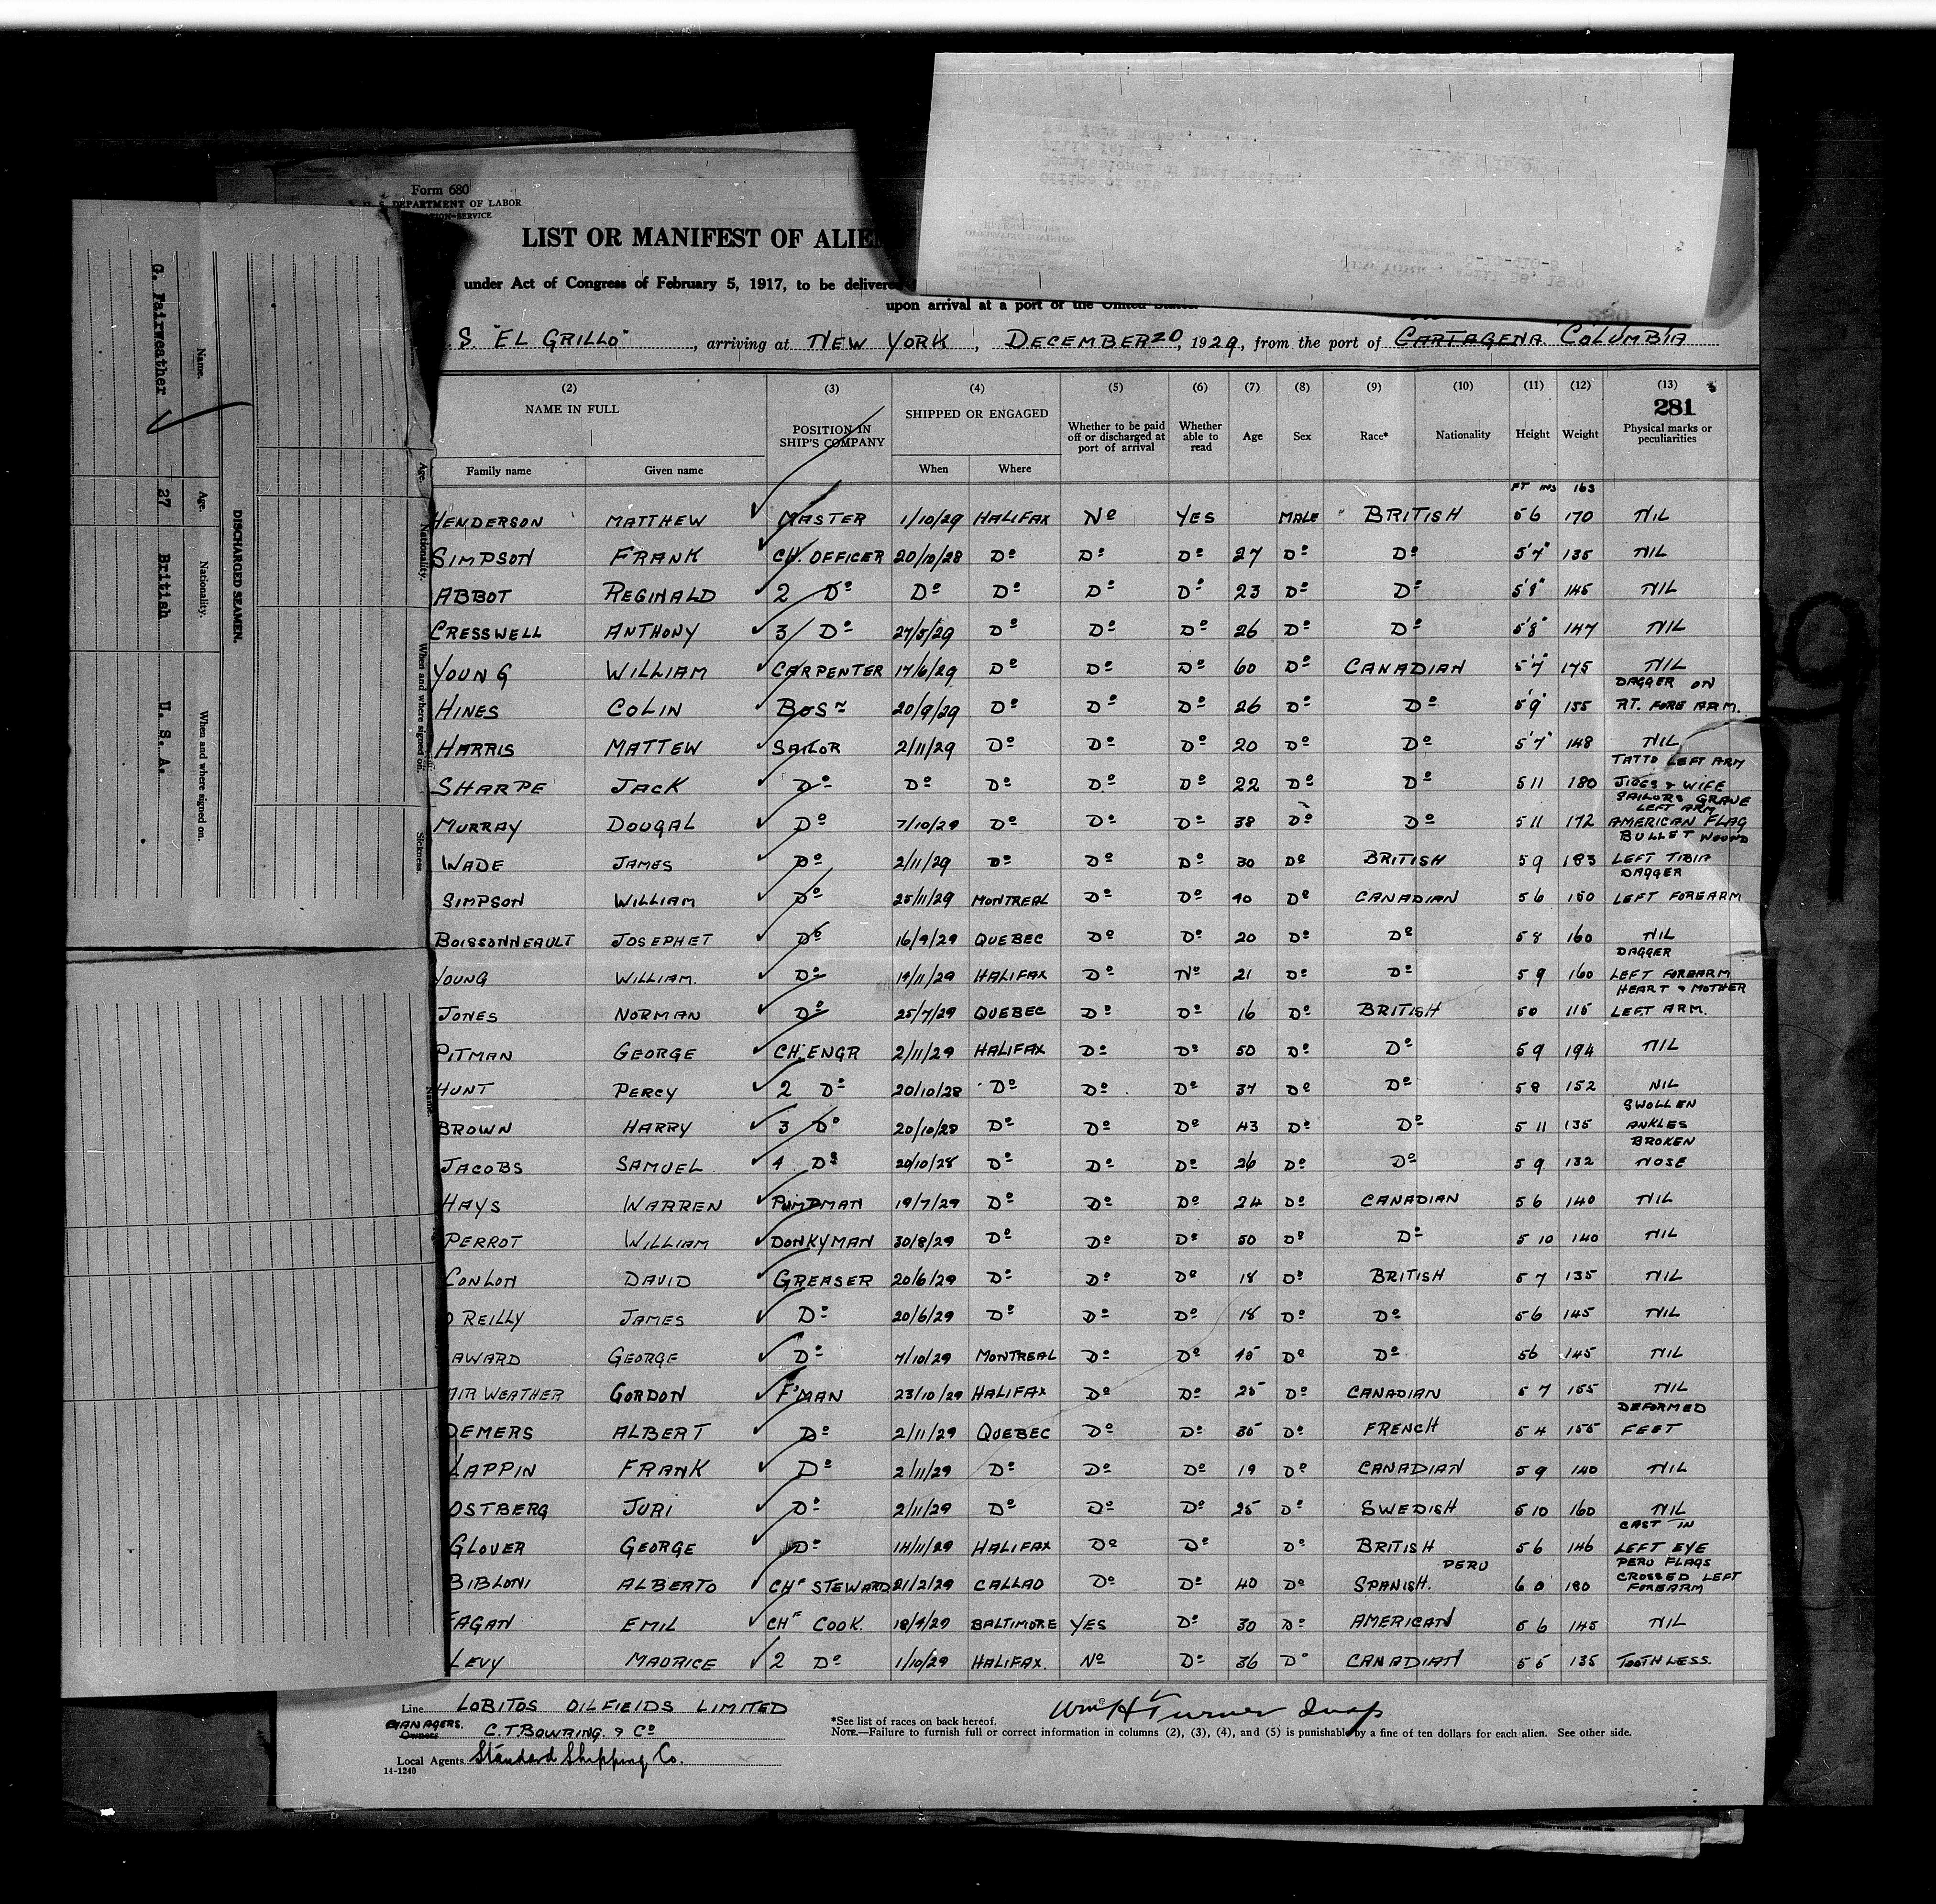 Form 680
U. S. DEPARTMENT OF LABOR
SERVICE
LIST OR MANIFEST OF ALIEN
under Act of Congress of February 5, 1917, to be delivered
upon arrival at a port of the United States.
S. "EL GRILLO", arriving at NEW YORK, DECEMBER 20, 1929, from the port of CARTAGENA. COLUMBIA
(2) (3) (4) (5) (6) (7) (8) (9) (10) (11) (12) (13)
281
NAME IN FULL POSITION IN SHIP'S COMPANY SHIPPED OR ENGAGED Whether to be paid off or discharged at port of arrival Whether able to read Age Sex Race* Nationality Height Weight Physical marks or peculiarities
Family name Given name When Where
FT INS 163
HENDERSON MATTHEW MASTER 1/10/29 HALIFAX No YES MALE BRITISH 5 6 170 NIL
SIMPSON FRANK CH. OFFICER 20/10/28 Do Do Do 27 Do Do 5'7" 135 NIL
ABBOT REGINALD 2 Do Do Do Do Do 23 Do Do 5'8" 145 NIL
CRESSWELL ANTHONY 3/ Do 27/5/29 Do Do Do 26 Do Do 5'8" 147 NIL
YOUNG WILLIAM CARPENTER 17/6/29 Do Do Do 60 Do CANADIAN 5'7" 175 NIL
HINES COLIN BOSN 20/9/29 Do Do Do 26 Do Do 5'9" 155 DAGGER ON RT. FORE ARM.
HARRIS MATTEW SAILOR 2/11/29 Do Do Do 20 Do Do 5'7" 148 NIL
SHARPE JACK Do Do Do Do Do 22 Do Do 5 11 180 TATTO LEFT ARM JIGGS & WIFE
MURRAY DOUGAL Do 7/10/29 Do Do Do 38 Do Do 5 11 172 SAILORS GRAVE LEFT ARM AMERICAN FLAG
WADE JAMES Do 2/11/29 Do Do Do 30 Do BRITISH 5 9 183 BULLET WOUND LEFT TIBIA
SIMPSON WILLIAM Do 25/11/29 MONTREAL Do Do 40 Do CANADIAN 5 6 150 DAGGER LEFT FOREARM
BOISSONNEAULT JOSEPHET Do 16/9/29 QUEBEC Do Do 20 Do Do 5 8 160 NIL
YOUNG WILLIAM. Do 19/11/29 HALIFAX Do No 21 Do Do 5 9 160 DAGGER LEFT FOREARM
JONES NORMAN Do 25/7/29 QUEBEC Do Do 16 Do BRITISH 5 0 115 HEART & MOTHER LEFT ARM.
PITMAN GEORGE CH. ENGR 2/11/29 HALIFAX Do Do 50 Do Do 5 9 194 NIL
HUNT PERCY 2 Do 20/10/28 Do Do Do 37 Do Do 5 8 152 NIL
BROWN HARRY 3 Do 20/10/28 Do Do Do 43 Do Do 5 11 135 SWOLLEN ANKLES
JACOBS SAMUEL 4 Do 20/10/28 Do Do Do 26 Do Do 5 9 132 BROKEN NOSE
HAYS WARREN PUMPMAN 19/7/29 Do Do Do 24 Do CANADIAN 5 6 140 NIL
PERROT WILLIAM DONKYMAN 30/8/29 Do Do Do 50 Do Do 5 10 140 NIL
CONLON DAVID GREASER 20/6/29 Do Do Do 18 Do BRITISH 5 7 135 NIL
O REILLY JAMES Do 20/6/29 Do Do Do 18 Do Do 5 6 145 NIL
AWARD GEORGE Do 7/10/29 MONTREAL Do Do 45 Do Do 5 6 145 NIL
AIRWEATHER GORDON F'MAN 23/10/29 HALIFAX Do Do 25 Do CANADIAN 5 7 155 NIL
DEMERS ALBERT Do 2/11/29 QUEBEC Do Do 35 Do FRENCH 5 4 155 DEFORMED FEET
LAPPIN FRANK Do 2/11/29 Do Do Do 19 Do CANADIAN 5 9 140 NIL
OSTBERG JURI Do 2/11/29 Do Do Do 25 Do SWEDISH 5 10 160 NIL
GLOVER GEORGE Do 14/11/29 HALIFAX Do Do Do BRITISH 5 6 146 CAST IN LEFT EYE
BIBLONI ALBERTO CHF STEWARD 21/2/29 CALLAO Do Do 40 Do SPANISH. PERU 6 0 180 PERU FLAGS CROSSED LEFT FOREARM
FAGAN EMIL CHF COOK. 18/4/29 BALTIMORE YES Do 30 Do AMERICAN 5 6 145 NIL
LEVY MAURICE 2 Do 1/10/29 HALIFAX. No Do 36 Do CANADIAN 5 5 135 TOOTHLESS.
Line LOBITOS OILFIELDS LIMITED
MANAGERS. Owners C. T. BOWRING. & Co
Local Agents Standard Shipping Co.
14-1240
*See list of races on back hereof.
Wm H Turner Insp
NOTE.—Failure to furnish full or correct information in columns (2), (3), (4), and (5) is punishable by a fine of ten dollars for each alien. See other side.
DISCHARGED SEAMEN.
Name. Age. Nationality. When and where signed on.
G. Fairweather 27 British U. S. A.
Age. Nationality. When and where signed on. Sickness.
Name.
9
280